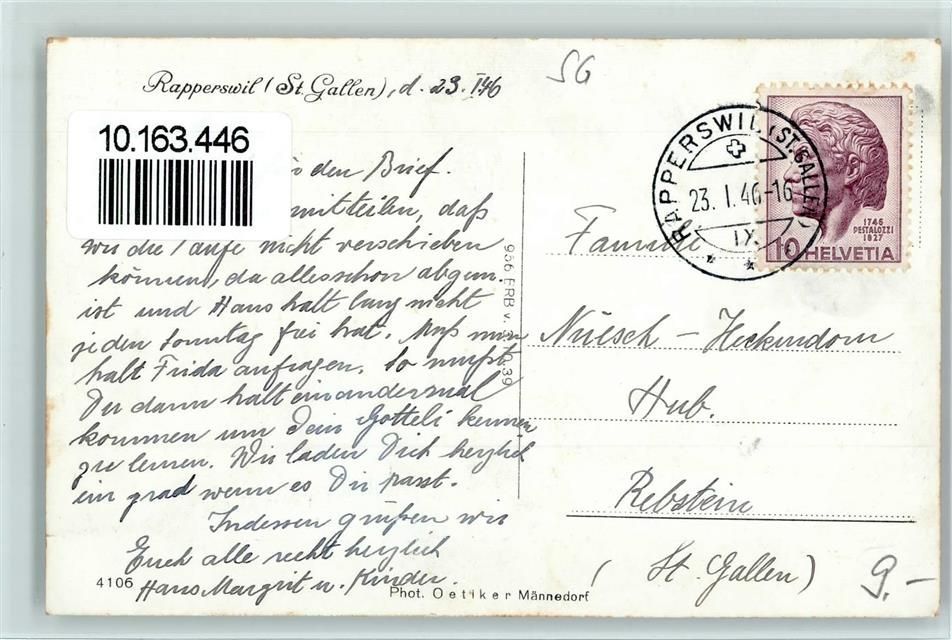 Rapperswil (St. Gallen), d. 23. I 46
SG
10.163.446
den Brief.
mitteilen, daß
wir die Taufe nicht verschieben
können, da alles schon abgem.
ist und Hans halt lang nicht
jeden Sonntag frei hat. Muß nun
halt Frida anfragen. So mußt
Du dann halt ein andermal
kommen um Dein Gotteli kennen
zu lernen. Wir laden Dich herzlich
ein grad wenn es Dir passt.
Indessen grüßen wir
Euch alle recht herzlich
Hans Margrit u. Kinder.
4106
Phot. Oetiker Männedorf
RAPPERSWIL (ST. GALLEN)
23. I. 46-16
IX.
1746
PESTALOZZI
1827
10 HELVETIA
Familie
Nüesch - Heckendorn
Hub.
Rebstein
(St. Gallen)
9.-